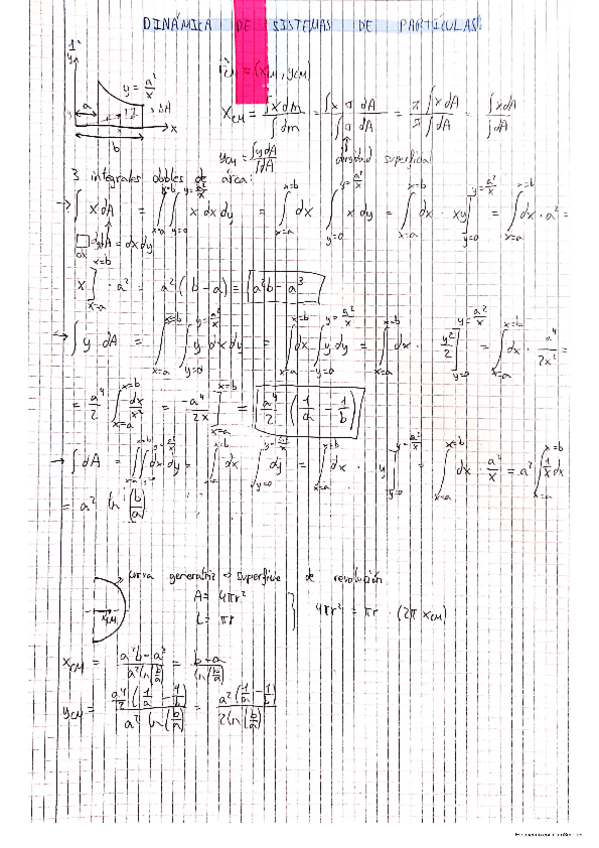 DINÁMICA DE SISTEMAS DE PARTÍCULAS:
1º
y = a²/x
a
x
b
= (x_CM, y_CM)
x_CM = ∫x dm / ∫dm = ∫x σ dA / ∫σ dA = σ∫x dA / σ∫dA = ∫x dA / ∫dA
y_CM = ∫y dA / ∫dA
densidad superficial
3 integrales dobles de área:
→ ∫ x dA = ∫_{x=a}^{x=b} ∫_{y=0}^{y=a²/x} x dx dy = ∫_{x=a}^{x=b} dx ∫_{y=0}^{y=a²/x} x dy = ∫_{x=a}^{x=b} dx · xy]_{y=0}^{y=a²/x} = ∫_{x=a}^{x=b} dx · a² =
dA = dx dy
dx
x]_{x=a}^{x=b} · a² = a² (b - a) = a²b - a³
→ ∫ y dA = ∫_{x=a}^{x=b} ∫_{y=0}^{y=a²/x} y dx dy = ∫_{x=a}^{x=b} dx ∫_{y=0}^{y=a²/x} y dy = ∫_{x=a}^{x=b} dx · y²/2]_{y=0}^{y=a²/x} = ∫_{x=a}^{x=b} dx · a⁴/2x² =
= a⁴/2 ∫_{x=a}^{x=b} dx/x² = -a⁴/2x]_{x=a}^{x=b} = a⁴/2 (1/a - 1/b)
→ ∫ dA = ∫_{x=a}^{x=b} ∫_{y=0}^{y=a²/x} dx dy = ∫_{x=a}^{x=b} dx ∫_{y=0}^{y=a²/x} dy = ∫_{x=a}^{x=b} dx · y]_{y=0}^{y=a²/x} = ∫_{x=a}^{x=b} dx · a²/x = a² ∫_{x=a}^{x=b} 1/x dx
= a² ln (b/a)
curva generatriz → Superficie de revolución
x_CM
A = 4πr²
L = πr
4πr² = πr · (2π x_CM)
x_CM = a²b - a³ / a² ln(b/a) = b - a / ln(b/a)
y_CM = a⁴/2 (1/a - 1/b) / a² ln(b/a) = a² (1/a - 1/b) / 2 ln(b/a)